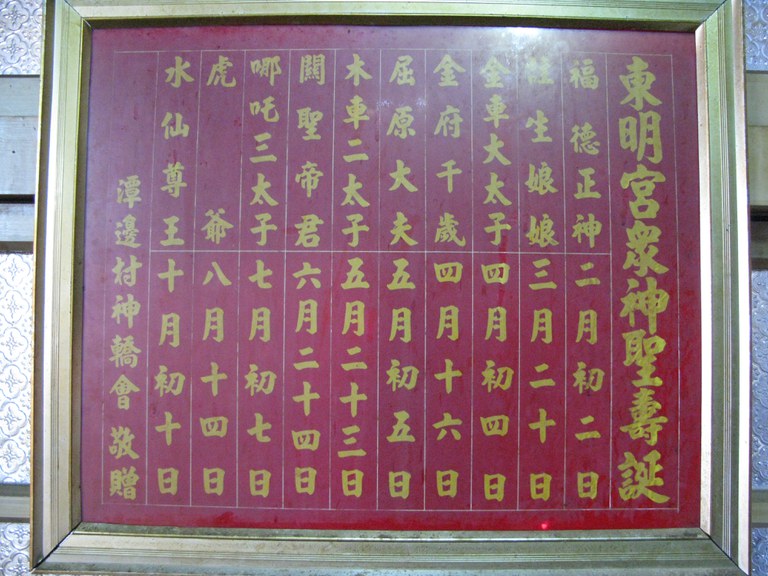 東明宮眾神聖壽誕
福德正神二月初二日
註生娘娘三月二十日
金車大太子四月初四日
金府千歲四月十六日
屈原大夫五月初五日
木車二太子五月二十三日
關聖帝君六月二十四日
哪吒三太子七月初七日
虎爺八月十四日
水仙尊王十月初十日
潭邊村神轎會敬贈